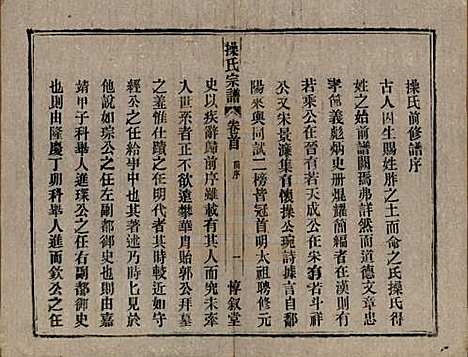 操氏前修譜序
古人因生賜姓胙之土而命之氏操氏得
姓之始前譜闕焉弗詳然而道德文章忠
孝節義彪炳史册焜耀簡編者在漢則有
若乘公在晉則有若天成公在宋則有若斗祥
公又宋景濂集有懷操公琬詩據言自鄱
陽來與同試二榜皆冠首明太祖聘修元
史以疾辭歸前序雖載有其人而究未牽
入世系者正不欲遠攀華胄貽郭公拜墓
之差惟仕蹟之在明代者其事近時無多
經公之任給事中也其著述乃時匕見於
他説如琮公之任左副都御史也則由嘉
靖甲子科舉人進琭公之任右副都御史
也則由隆慶丁卯科舉人進而欽公之任
操氏宗譜
卷首
舊序
一
惇叙堂